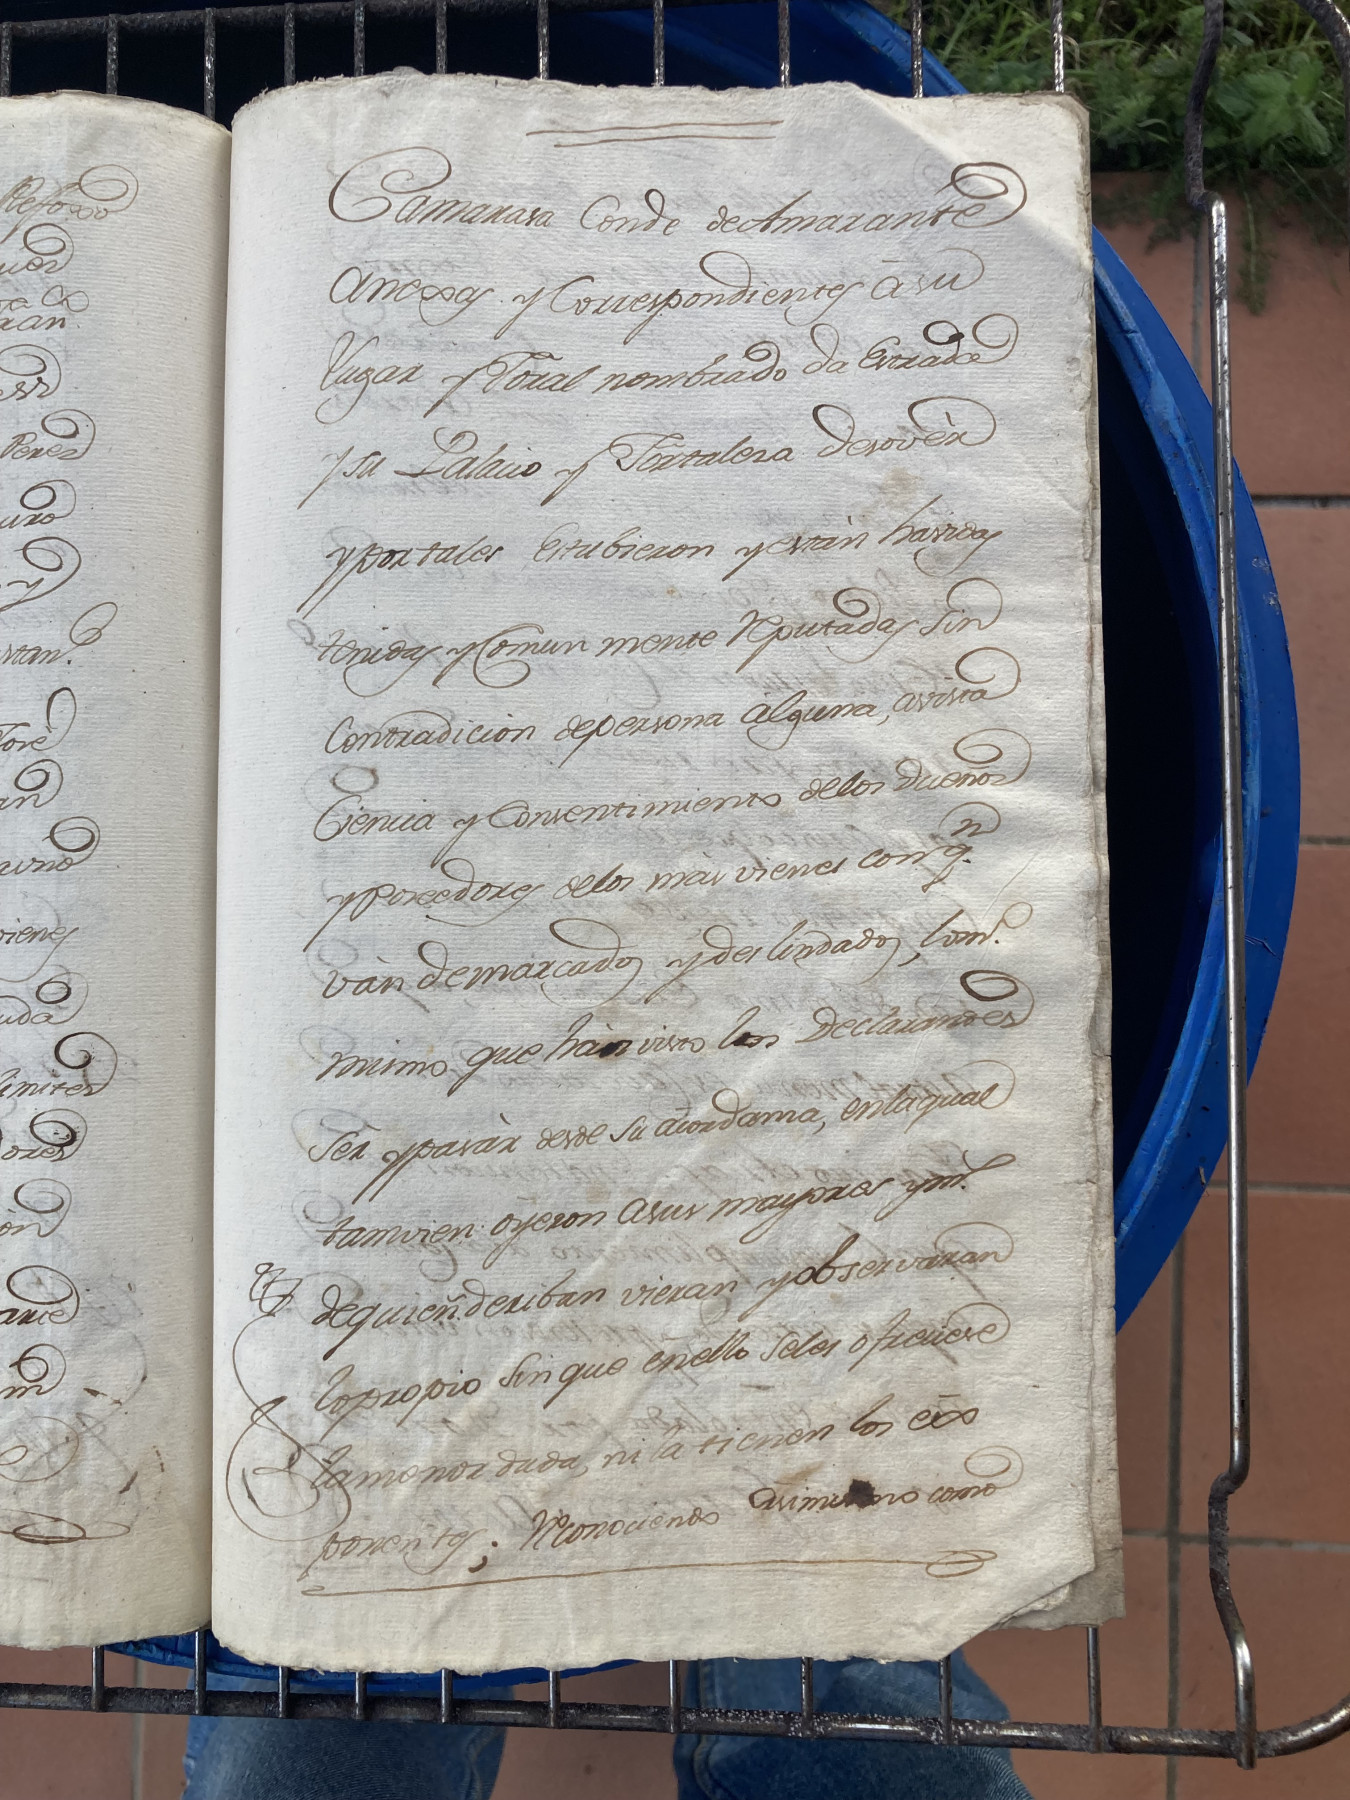 Refoxo
Perez
vienes
limites
Camarasa Conde de Amarante
Anexas y Correspondientes á su
Lugar y Foral nombrado da Estrada
y su Palacio y Fortaleza de sovér
y portales Estubieron y están havidas
tenidas y Comun mente Reputadas sin
Contradicion de persona alguna, avista
Ciencia y Consentimiento delos Dueños
y Poseedores delos más vienes con q.n
ván demarcados y des lindados, lom.o
mismo que hán visto los Declarantes
Ser y pasár desde su acordanza, enlaqual
tamvien oyeron asus mayores y m.s
dequien deriban vieran y observaran
lopropio sin que enello seles ofreciese
lamenor duda, ni la tienen los exs
ponentes; Reconociendo asimismo como